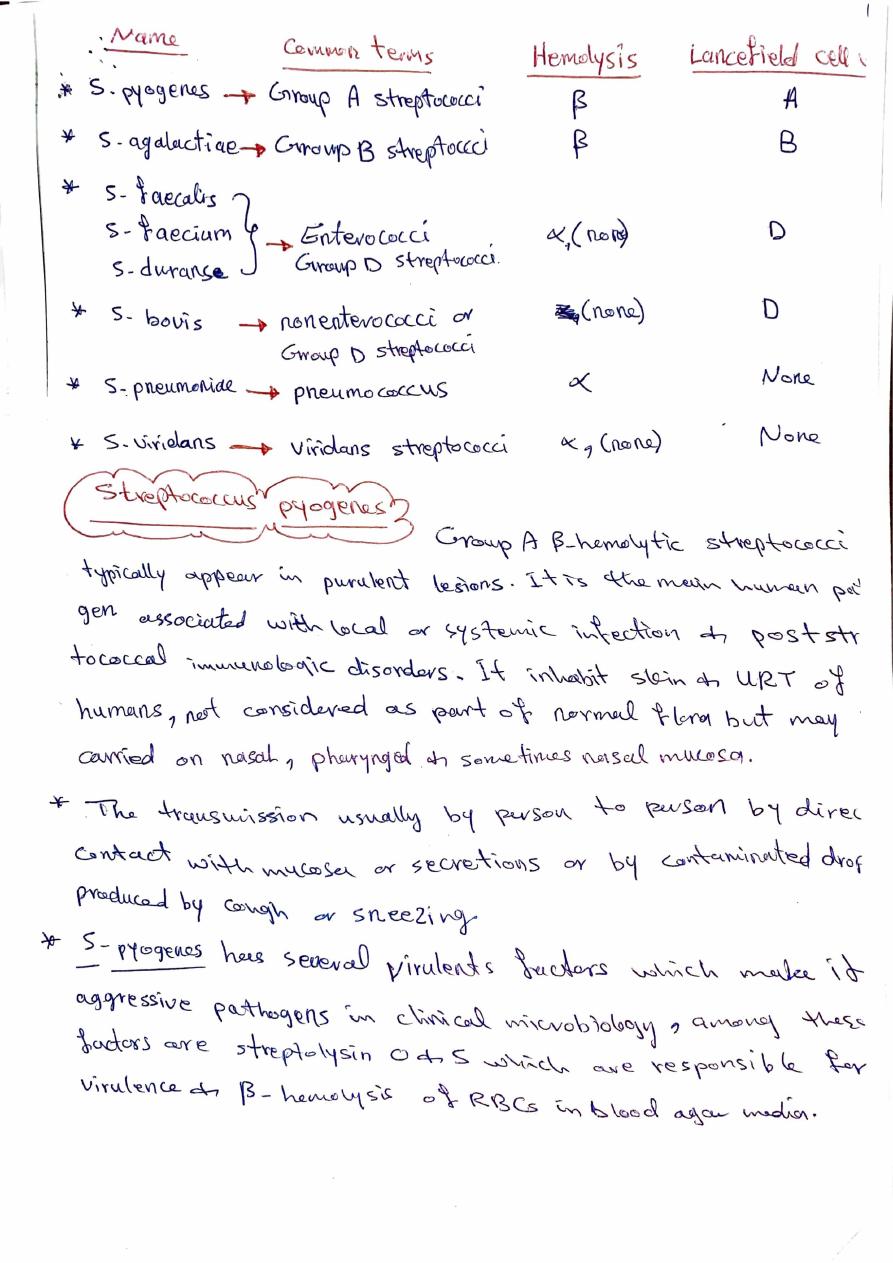 1
Name Common terms Hemolysis Lancefield cell
* S. pyogenes → Group A streptococci β A
* S- agalactiae → Group B streptoccci β B
* S- faecalis
S- faecium → Enterococci α, (none) D
S- duranse Group D streptococci.
* S- bovis → nonenterococci or (none) D
Group D streptococci
* S- pneumoniae → pneumococcus α None
* S- viridans → viridans streptococci α, (none) None
Streptococcus pyogenes
Group A β-hemolytic streptococci
typically appear in purulent lesions. It is the main human
gen associated with local or systemic infection & postst
tococcal immunologic disorders. It inhabit skin & URT of
humans, not considered as part of normal flora but may
carried on nasal, pharyngeal & sometimes nasal mucosa.
* The transmission usually by person to person by direc
contact with mucosa or secretions or by contaminated
produced by cough or sneezing
* S- pyogenes has several virulents factors which make it
aggressive pathogens in clinical microbiology, among these
factors are streptolysin O & S which are responsible for
virulence & β-hemolysis of RBCs in blood agar media.